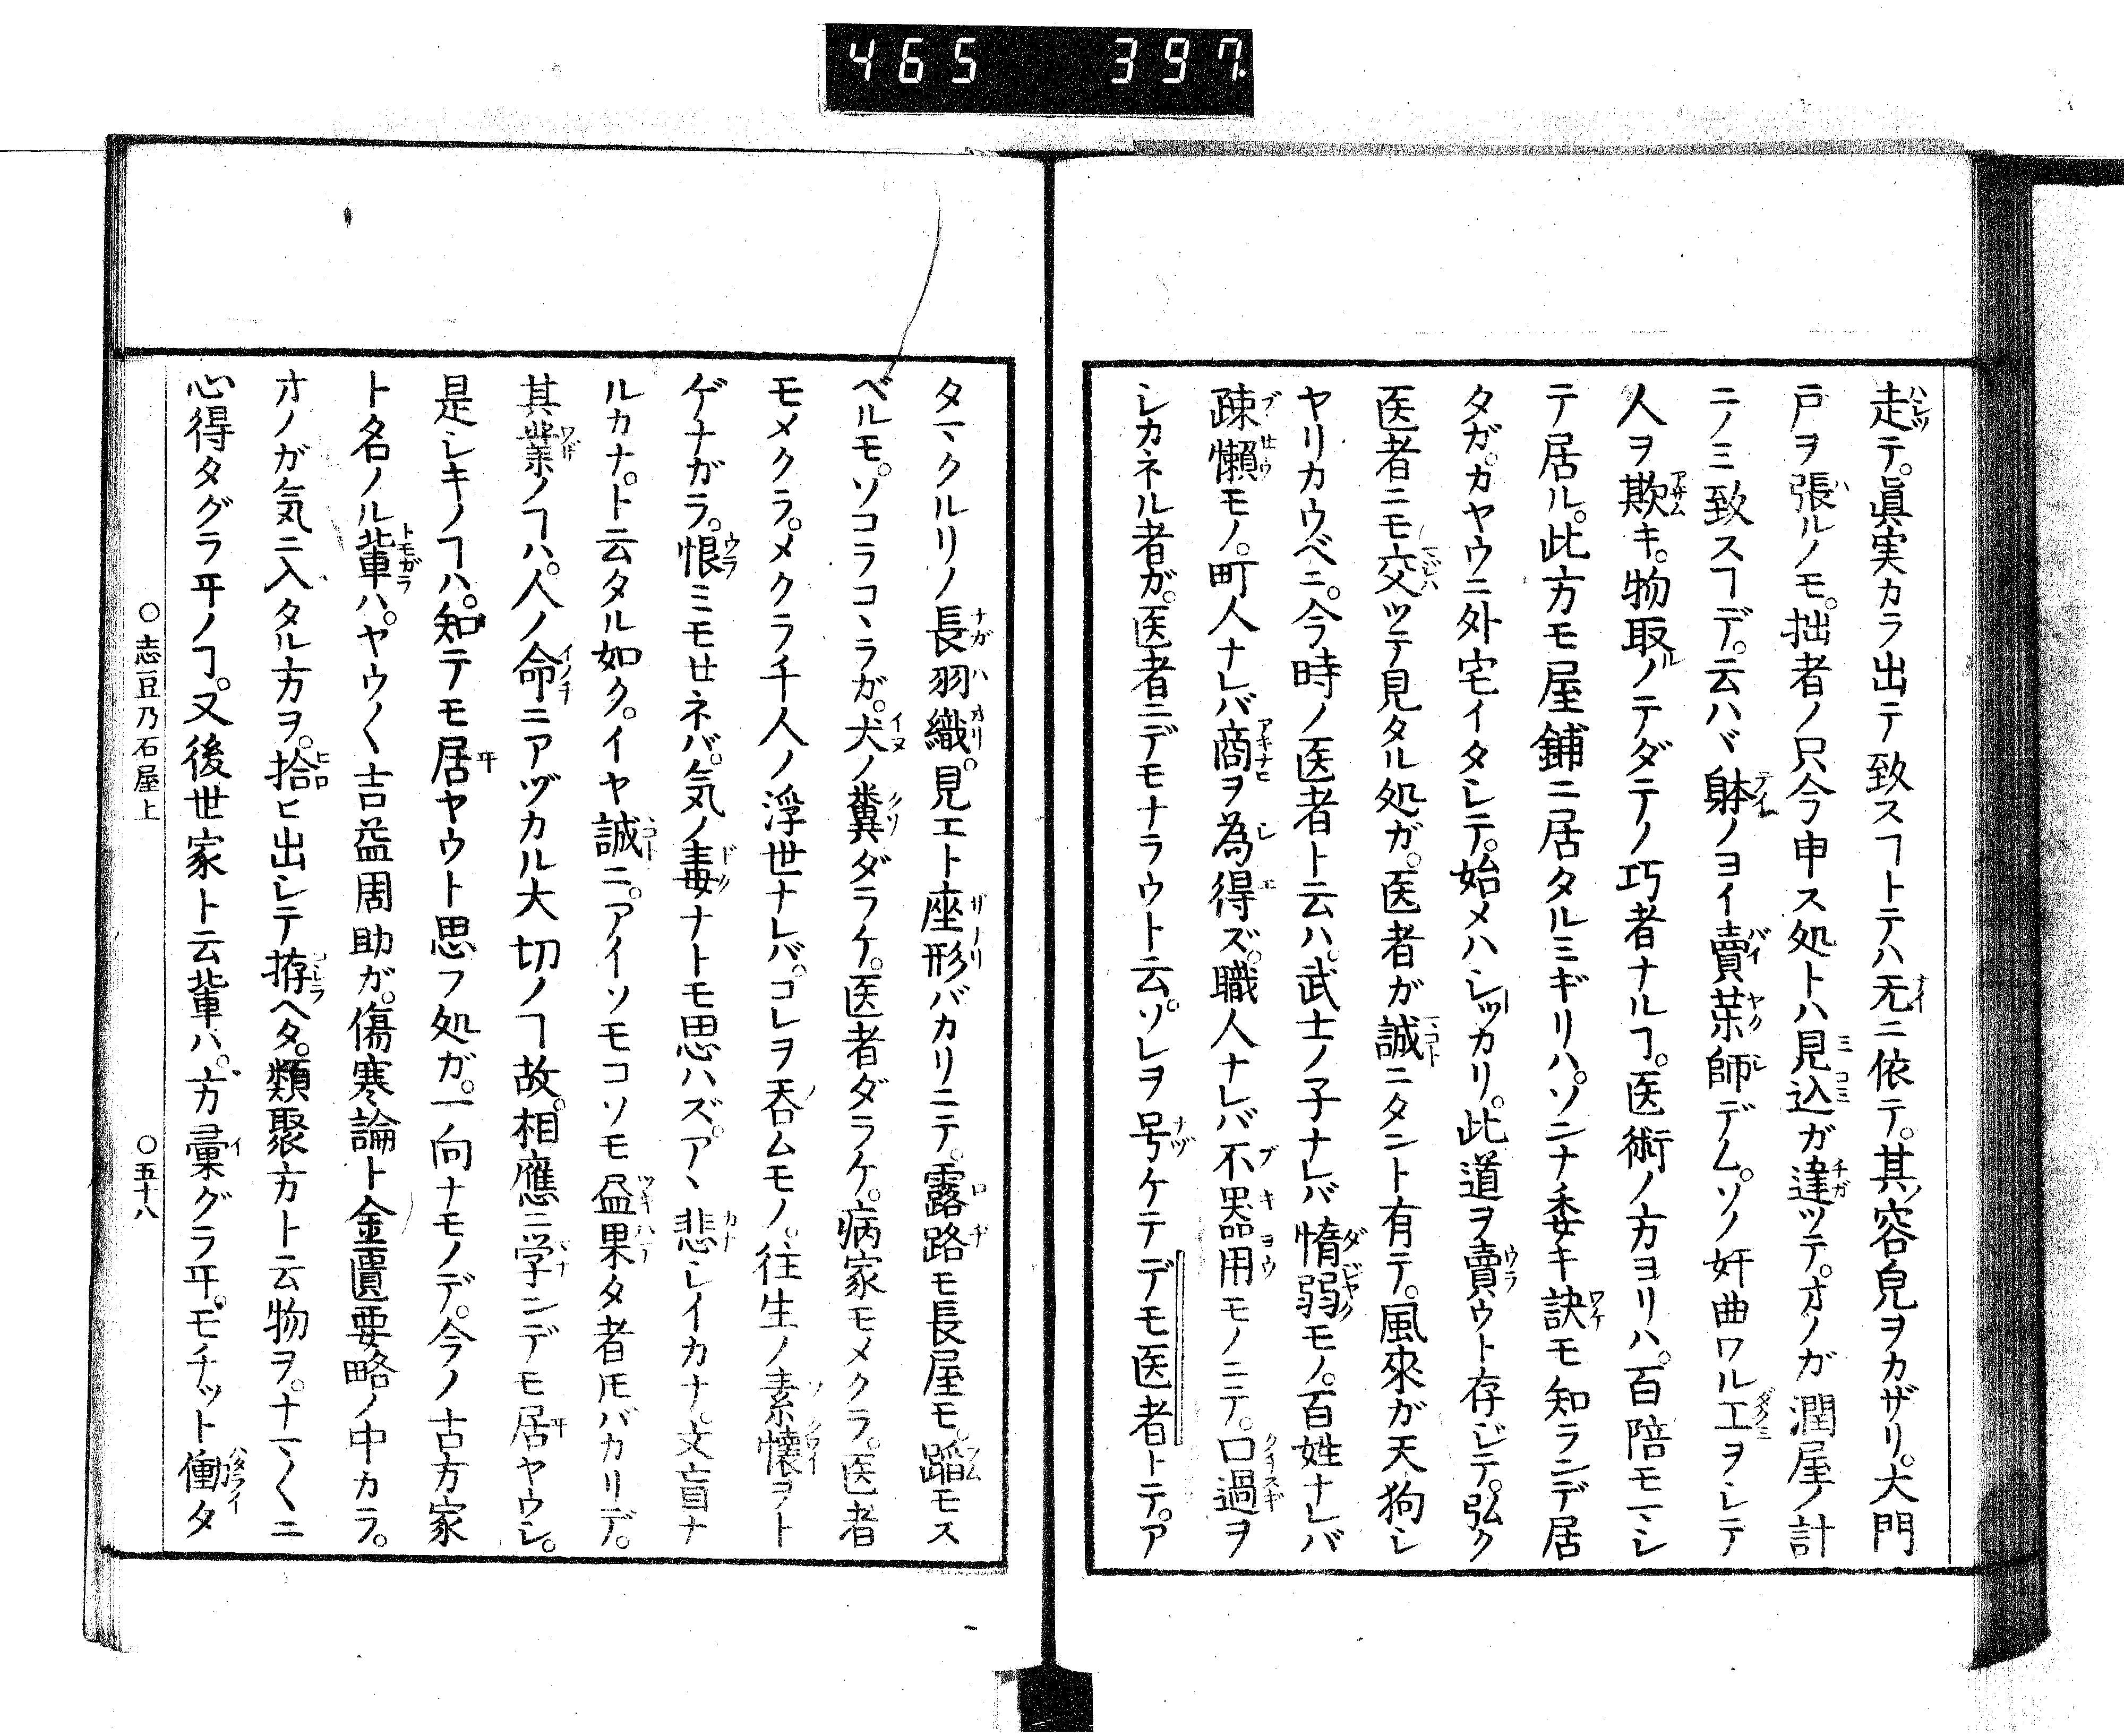 465 397.
走テ。眞実カラ出テ致スヿトテハ无ニ依テ。其容皃ヲカザリ。大門
戸ヲ張ルノモ。拙者ノ只今申ス処トハ見込ガ違ツテ。オノガ潤屋ノ計
ニノミ致スヿデ。云ハヾ躰ノヨイ賣薬師デム。ソノ奸曲ワル工ヲシテ
人ヲ欺キ。物取ノテダテノ巧者ナルヿ。医術ノ方ヨリハ。百陪モマシ
テ居ル。此方モ屋鋪ニ居タルミギリハ。ソンナ委キ訣モ知ランデ居
タガ。カヤウニ外宅イタシテ。始メハシッカリ。此道ヲ賣ウト存ジテ。弘ク
医者ニモ交ツテ見タル処ガ。医者ガ誠ニタント有テ。風來ガ天狗シ
ヤリカウベニ。今時ノ医者ト云ハ。武士ノ子ナレバ惰弱モノ。百姓ナレバ
疎懶モノ。町人ナレバ商ヲ為得ズ。職人ナレバ不器用モノニテ。口過ヲ
シカネル者ガ。医者ニデモナラウト云。ソレヲ号ケテデモ医者トテ。ア
タマクルリノ長羽織。見エト座形バカリニテ。露路モ長屋モ。蹈モス
ベルモ。ソコラコヽラガ。犬ノ糞ダラケ。医者ダラケ。病家モメクラ。医者
モメクラ。メクラ千人ノ浮世ナレバ。コレヲ呑ムモノ。往生ノ素懐ヲト
ゲナガラ。恨ミモセネバ。気ノ毒ナトモ思ハズ。アヽ悲シイカナ。文盲ナ
ルカナ。ト云タル如ク。イヤ誠ニ。アイソモコソモ益果タ者𪜈バカリデ。
其業ノヿハ。人ノ命ニアヅカル大切ノヿ故。相應ニ学ンデモ居ヤウシ。
是シキノヿハ。知テモ居ヤウト思フ処ガ。一向ナモノデ。今ノ古方家
ト名ノル輩ハ。ヤウ〱吉益周助ガ。傷寒論ト金匱要略ノ中カラ。
オノガ気ニ入タル方ヲ。拾ヒ出シテ拵ヘタ。類聚方ト云物ヲ。ナマ〱ニ
心得タグラヰノヿ。又後世家ト云輩ハ。方彙グラヰ。モチット働タ
○志豆乃石屋上 ○五十八